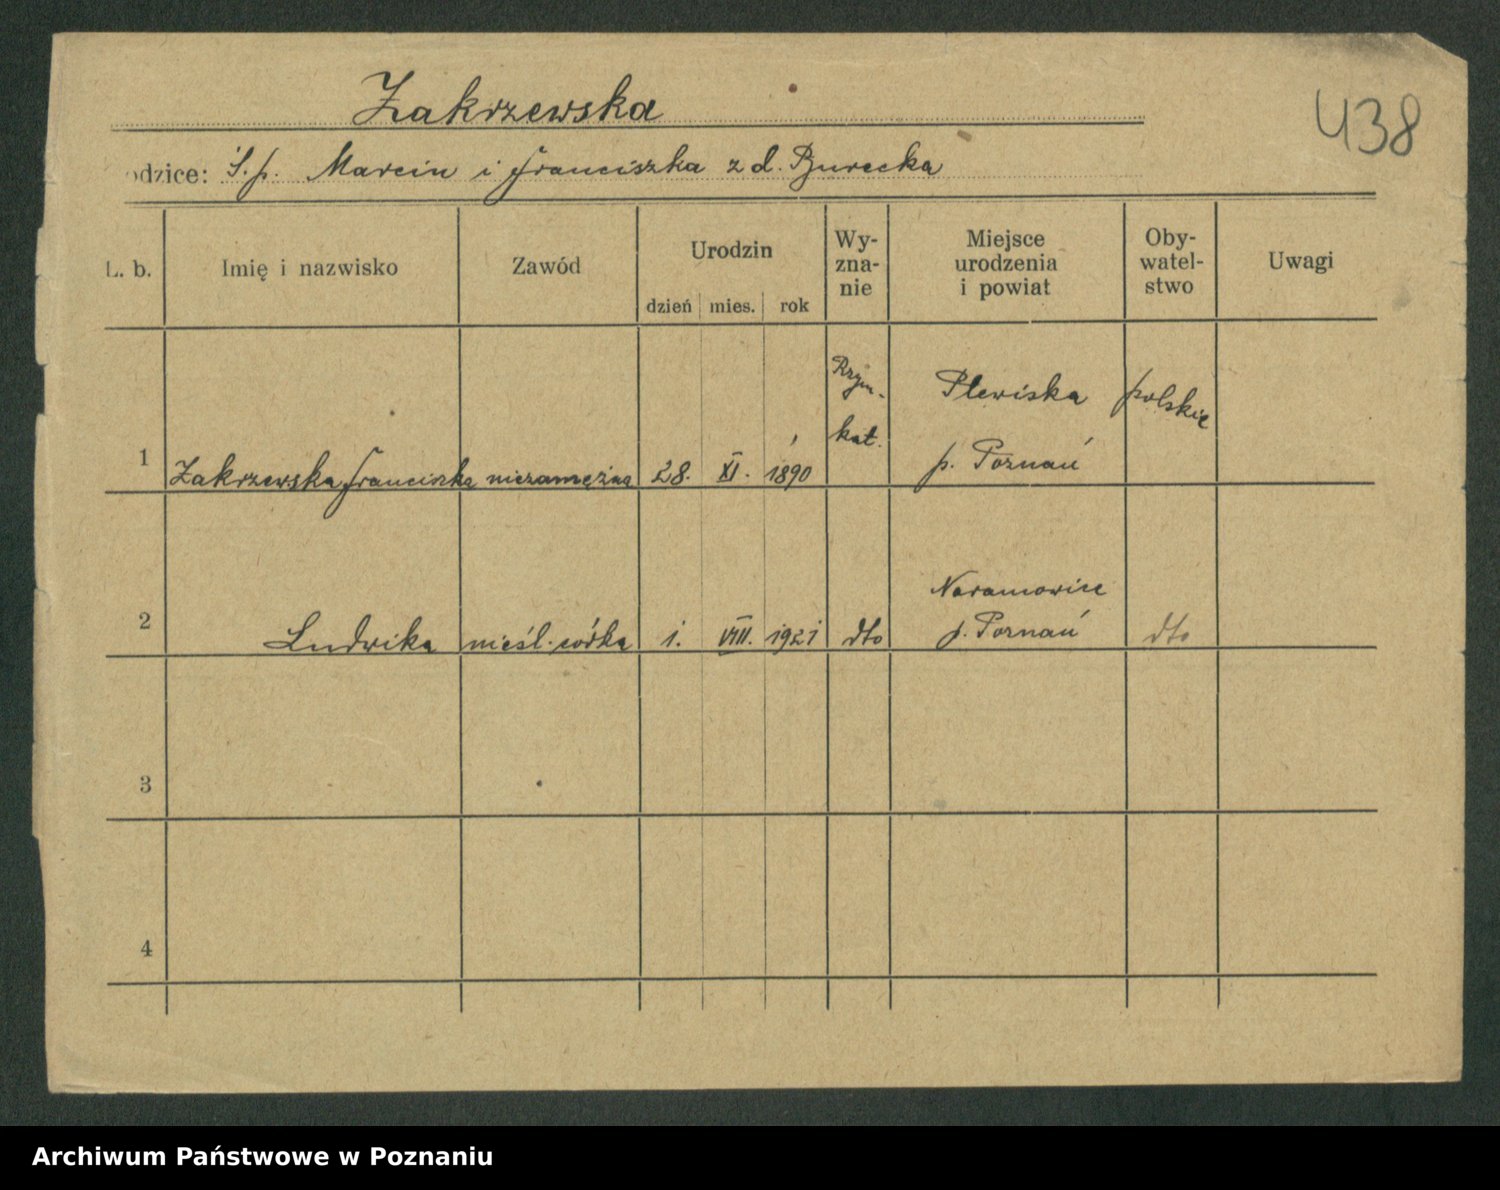 Zakrzewska
438
odzice: Ś.p. Marcin i Franciszka z d. Burecka
L. b. Imię i nazwisko Zawód Urodzin dzień mies. rok Wy-zna-nie Miejsce urodzenia i powiat Oby-watel-stwo Uwagi
1 Zakrzewska Franciszka niezamężna 28. XI. 1890 Rzym.-kat. Plewiska p. Poznań polskie
2 Ludwika nieśl. córka 1. VIII. 1921 dto Naramowice p. Poznań dto
3
4
Archiwum Państwowe w Poznaniu